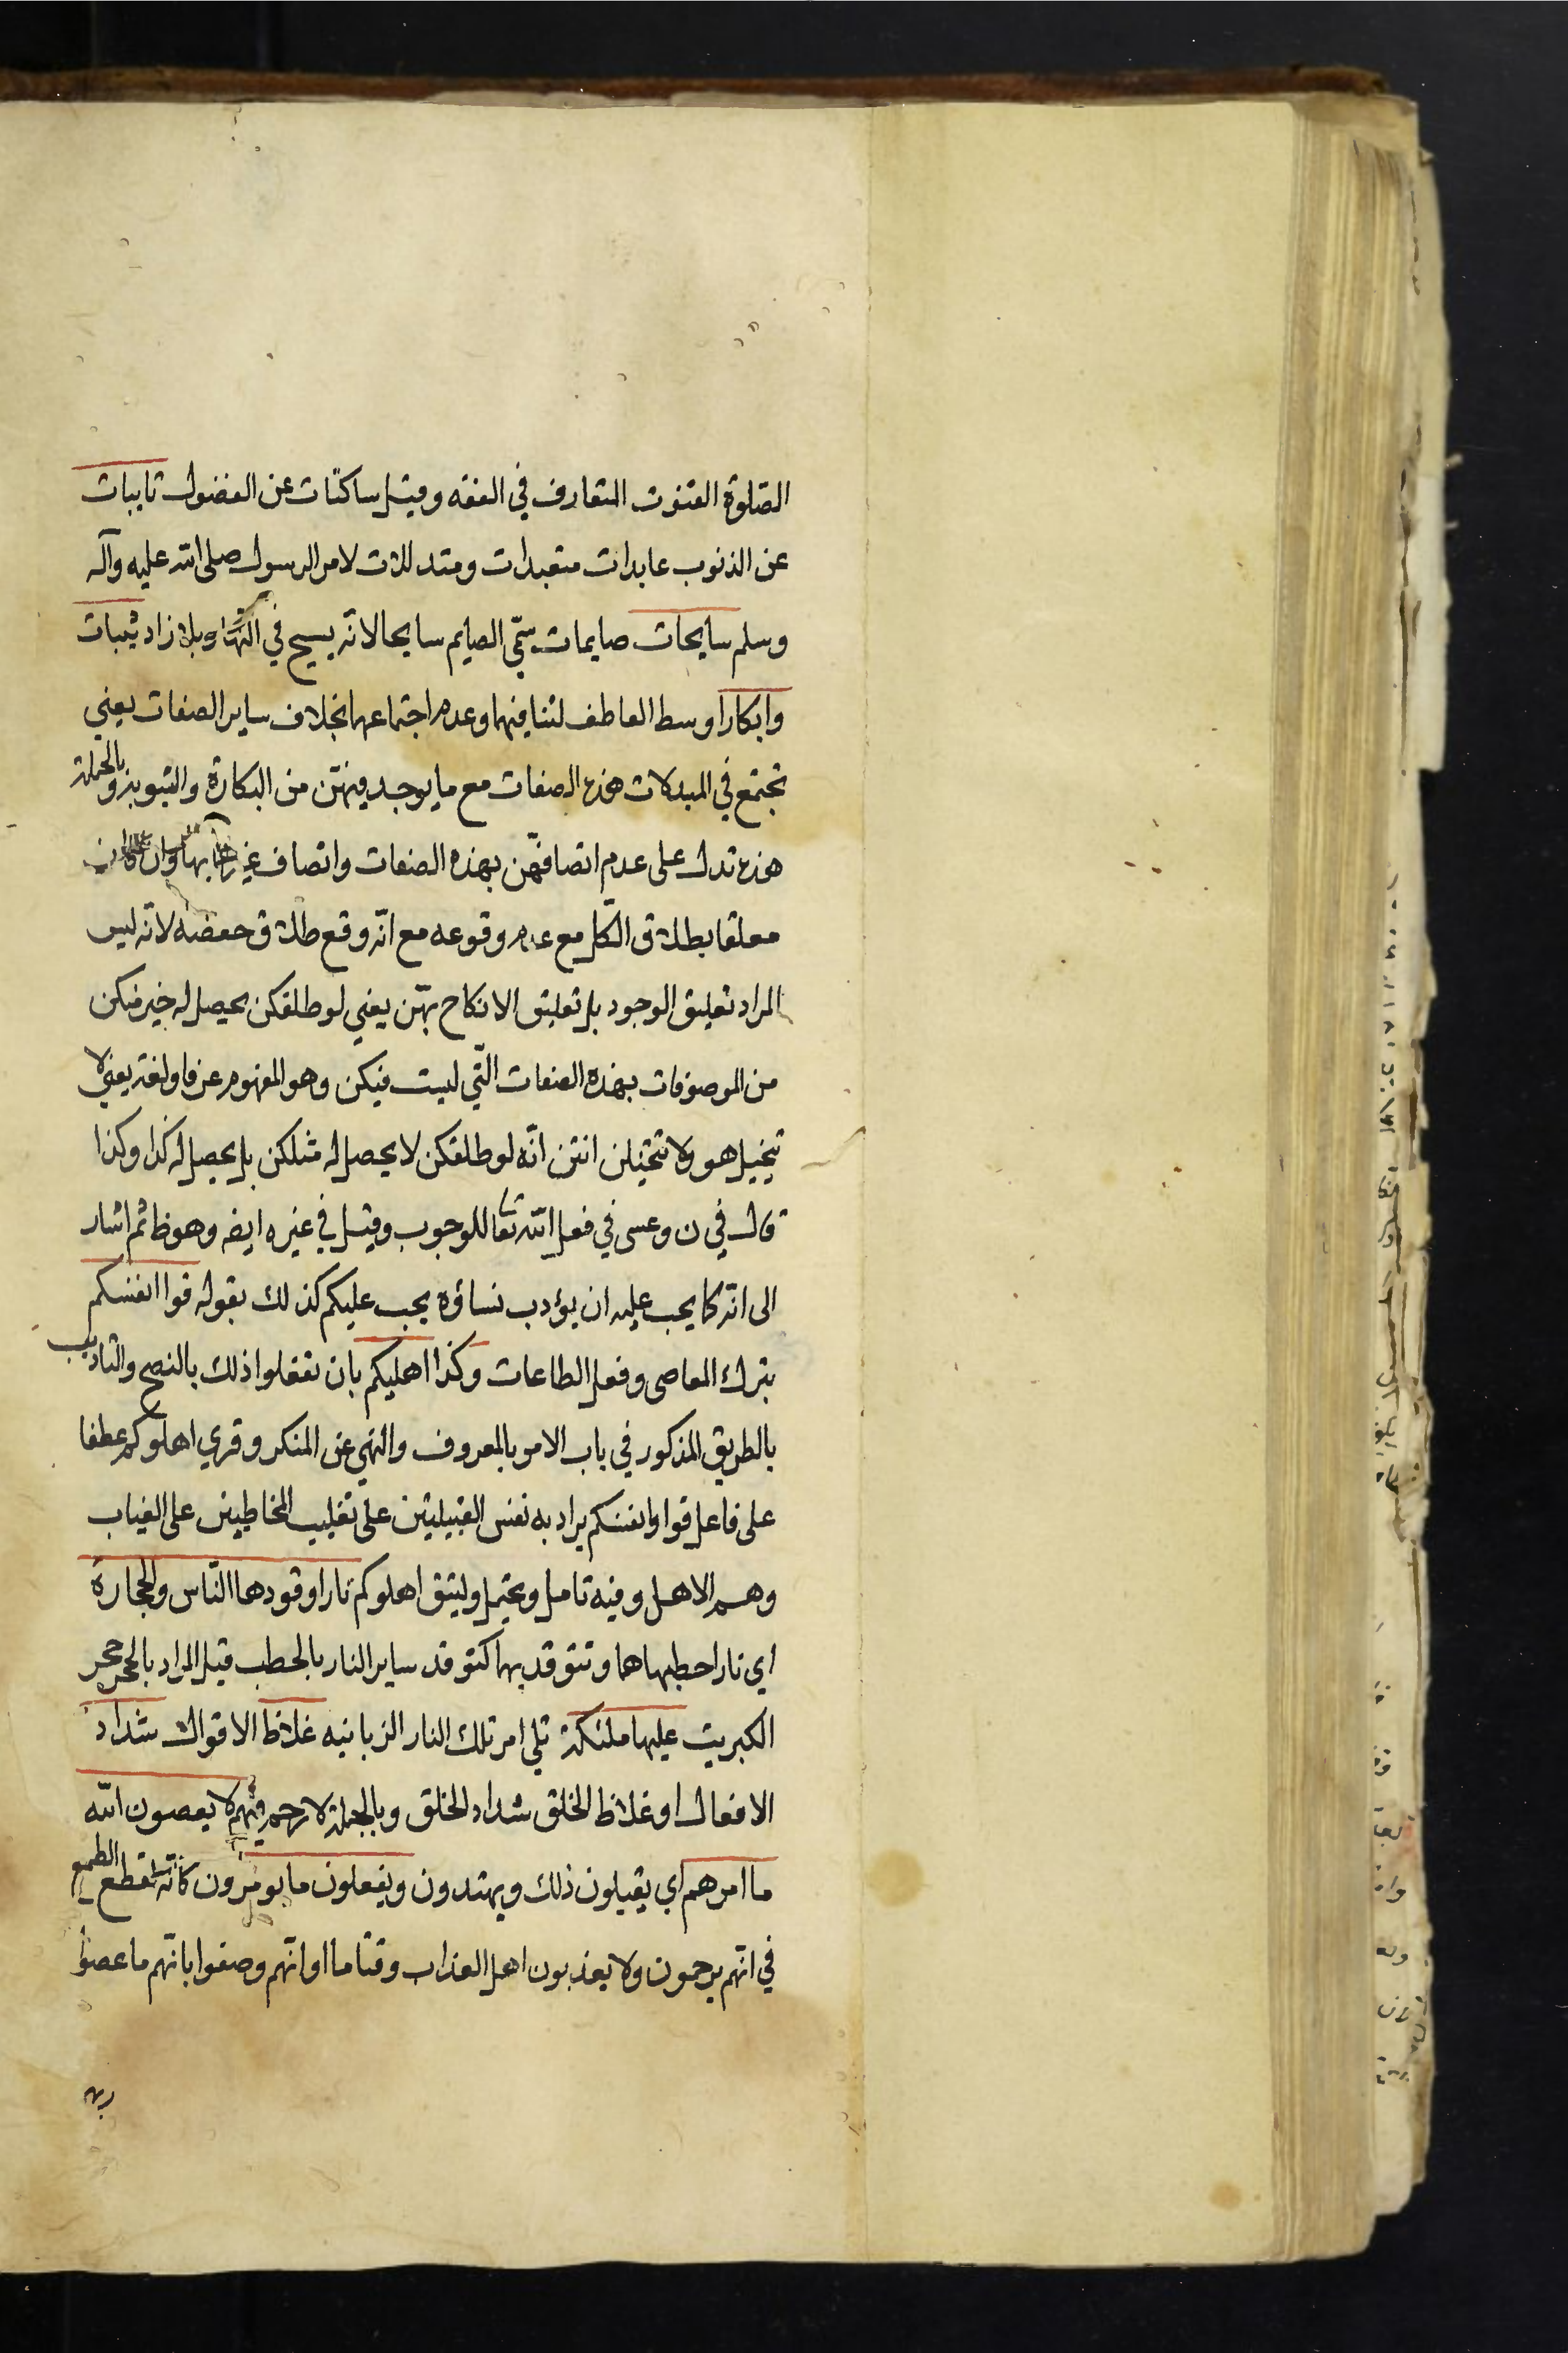 الصّلوة القنوت المتعارف في الفقه وقيل ساكتات عن الفضول تايبات
عن الذنوب عابدات متعبدات ومتدللات لامر الرسول صلى الله عليه وآله
وسلم سايحات صايمات سمّي الصايم سايحا لانّه يسيح في النّهار بلا زاد ثيبات
وابكارا وسط العاطف لتنافيهما وعدم اجتماعهما بخلاف ساير الصفات يعني
تجتمع في المبدلات هذه الصفات مع ما يوجد فيهنّ من البكارة والثيوبة وبالجملة
هذه تدل على عدم اتصافهنّ بهذه الصفات واتصاف غيرها بها وان كان
معلقا بطلاق الكل مع عدم وقوعه مع انّه وقع طلاق حفصة لانّه ليس
المراد تعليق الوجود بل تعليق الانكاح بهنّ يعني لو طلقكن يحصل له خير منكن
من الموصوفات بهذه الصفات الّتي ليست فيكن وهو المفهوم عرفا ولغة يعني لا
تخيل هو ولا تتخيلن انتن انّه لو طلقكن لا يحصل له مثلكن بل يحصل له كذا وكذا
قال في ن وعسى في فعل الله تعا للوجوب وقيل في غيره ايضه وهو ظ ثم اشار
الى انّه كما يجب عليه ان يؤدب نساؤه يجب عليكم كذلك بقوله قوا انفسكم
بترك المعاصي وفعل الطاعات وكذا اهليكم بان تفعلوا ذلك بالنصح والتاديب
بالطريق المذكور في باب الامر بالمعروف والنهي عن المنكر وقري اهلوكم عطفا
على فاعل قوا وانفسكم يراد به نفس القبيلتين على تغليب المخاطبين على الغياب
وهم الاهل وفيه تامل ويحتمل وليتق اهلوكم نارا وقودها النّاس والحجارة
اي نارا حطبها هما وتتوقد بهما كتوقد ساير النار بالحطب قيل المراد بالحجر حجر
الكبريت عليها ملئكة تلي امر تلك النار الزبانيه غلاظ الاقوال شداد
الافعال او غلاظ الخلق شداد الخلق وبالجملة لا رحم فيهم لا يعصون الله
ما امرهم اي يقبلون ذلك ويهتدون ويفعلون ما يومرون كانّه لقطع الطمع
في انّهم يرحمون ولا يعذبون اهل العذاب وقتا ما او انّهم وصفوا بانّهم ما عصوا